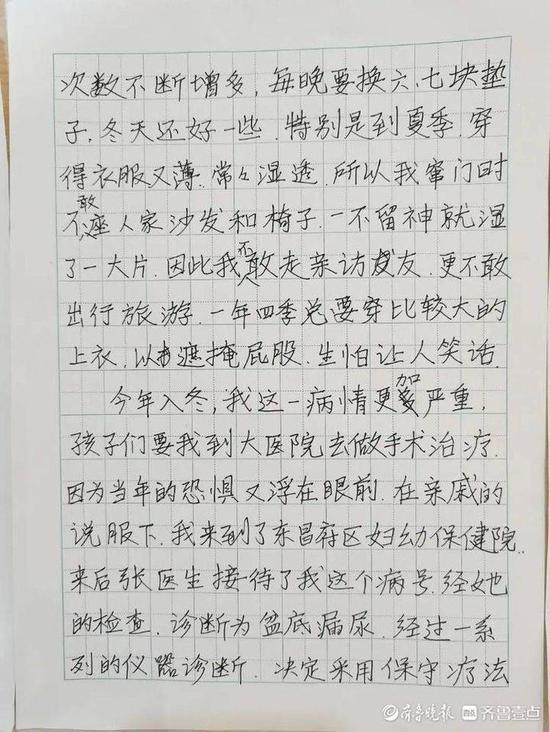 次数不断增多，每晚要换六、七块垫
子，冬天还好一些，特别是到夏季，穿
得衣服又薄，常々湿透，所以我窜门时
不敢座人家沙发和椅子，一不留神就湿
了一大片，因此我不敢走亲访友，更不敢
出行旅游，一年四季总要穿比较大的
上衣，以遮掩屁股，生怕让人笑话，
今年入冬，我这一病情更加严重，
孩子们要我到大医院去做手术治疗，
因为当年的恐惧又浮在眼前，在亲戚的
说服下，我来到了东昌府区妇幼保健院，
来后张医生接待了我这个病号，经她
的检查，诊断为盆底漏尿，经过一系
列的仪器诊断，决定采用保守疗法
齐鲁晚报 齐鲁壹点